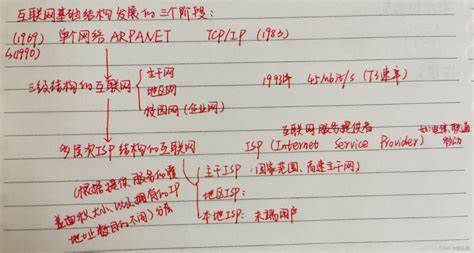 互联网基础结构发展的三个阶段：
(1969) 单个网络 ARPANET TCP/IP (1983)
(1990)
三级结构的互联网 主干网 1993年 45Mbit/s (T3速率)
地区网
校园网（企业网）
互联网服务提供者
多层次ISP结构的互联网 ISP (Internet Service Provider) 电信，联通
主干ISP：国家范围、高速主干网
（根据提供服务的覆
地区ISP：
盖面积大小，以及拥有的IP
地址数目的不同）分层
本地ISP：末端用户